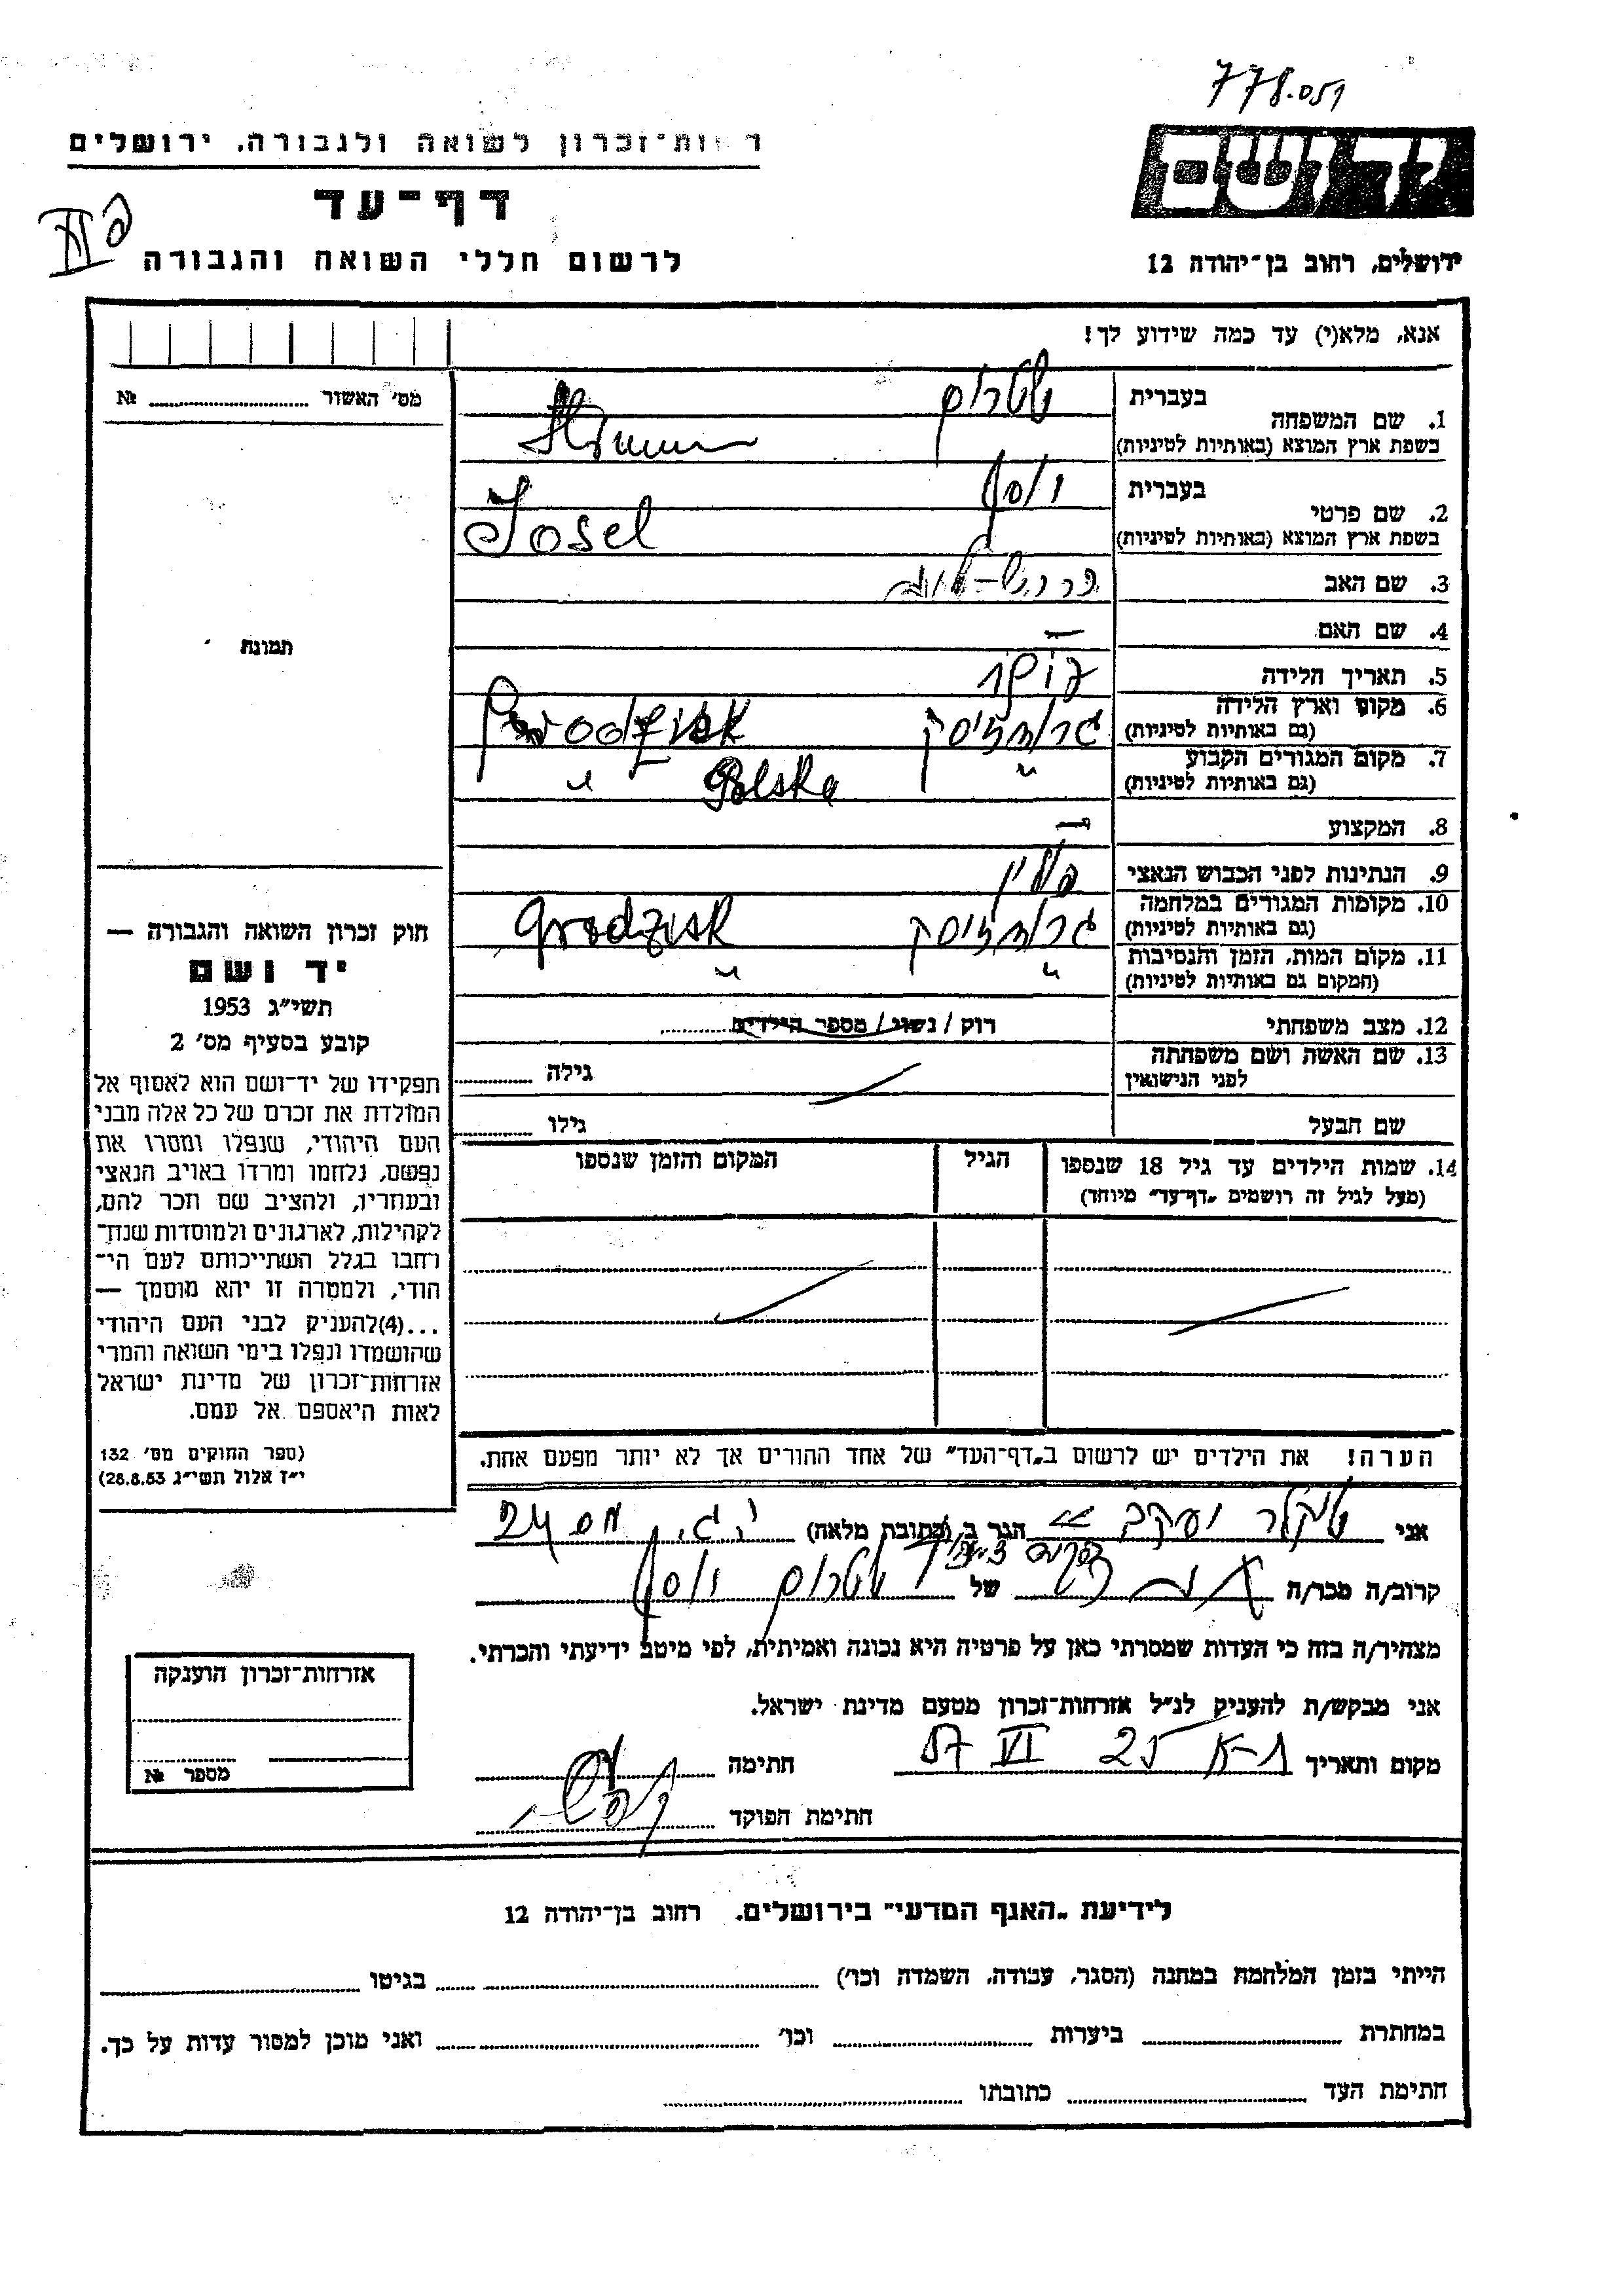 778.051
רשות־זכרון לשואה ולגבורה, ירושלים
יד ושם
דף־עד
לרשום חללי השואה והגבורה
ירושלים, רחוב בן־יהודה 12
אנא, מלא(י) עד כמה שידוע לך!
מס׳ האשור № ..........
1. שם המשפחה
בעברית
שטרום
בשפת ארץ המוצא (באותיות לטיניות)
2. שם פרטי
בעברית
יוסף
בשפת ארץ המוצא (באותיות לטיניות)
Josel
3. שם האב
4. שם האם —
5. תאריך הלידה
6. מקום וארץ הלידה
(גם באותיות לטיניות)
גרודזיסק Grodzisk
7. מקום המגורים הקבוע
(גם באותיות לטיניות)
" Polska "
8. המקצוע —
9. הנתינות לפני הכבוש הנאצי
פולין
10. מקומות המגורים במלחמה
(גם באותיות לטיניות)
גרודזיסק Grodzisk
11. מקום המות, הזמן והנסיבות
(המקום גם באותיות לטיניות)
" "
12. מצב משפחתי
רוק / נשוי / מספר הילדים ..........
13. שם האשה ושם משפחתה
לפני הנישואין
גילה ..........
שם הבעל
גילו ..........
14. שמות הילדים עד גיל 18 שנספו
(מעל לגיל זה רושמים „דף־עד" מיוחד)
הגיל
המקום והזמן שנספו
הערה! את הילדים יש לרשום ב„דף־העד" של אחד ההורים אך לא יותר מפעם אחת.
תמונת
חוק זכרון השואה והגבורה —
יד ושם
תשי״ג 1953
קובע בסעיף מס׳ 2
תפקידו של יד־ושם הוא לאסוף אל
המולדת את זכרם של כל אלה מבני
העם היהודי, שנפלו ומסרו את
נפשם, נלחמו ומרדו באויב הנאצי
ובעוזריו, ולהציב שם וזכר להם,
לקהילות, לארגונים ולמוסדות שנח־
רחבו בגלל השתייכותם לעם הי־
הודי, ולמטרה זו יהא מוסמך —
...(4)להעניק לבני העם היהודי
שהושמדו ונפלו בימי השואה והמרי
אזרחות־זכרון של מדינת ישראל
לאות היאספם אל עמם.
(ספר החוקים מס׳ 132
י״ז אלול תשי״ג 28.8.53)
אני יעקב הגר ב (כתובת מלאה)
קרוב/ה מכר/ה של שטרום יוסף
מצהיר/ה בזה כי העדות שמסרתי כאן על פרטיה היא נכונה ואמיתית, לפי מיטב ידיעתי והכרתי.
אני מבקש/ת להעניק לנ״ל אזרחות־זכרון מטעם מדינת ישראל.
מקום ותאריך ת-א 25 VI 57 חתימה
חתימת הפוקד
אזרחות־זכרון הוענקה
מספר №
לידיעת „האגף המדעי" בירושלים. רחוב בן־יהודה 12
הייתי בזמן המלחמה במחנה (הסגר, עבודה, השמדה וכו׳) .......... בגיטו ..........
במחתרת .......... ביערות .......... וכו׳ .......... ואני מוכן למסור עדות על כך.
חתימת העד .......... כתובתו ..........